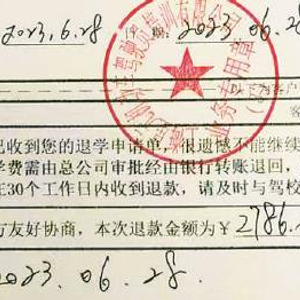 2023.6.28 期: 2023.06.28
驾驶员培训有限公司
业务专用章
收到您的退学申请单，很遗憾不能继续
学费需由总公司审批经由银行转账退回，
在30个工作日内收到退款，请及时与驾校
方友好协商，本次退款金额为￥2786.
2023.06.28.